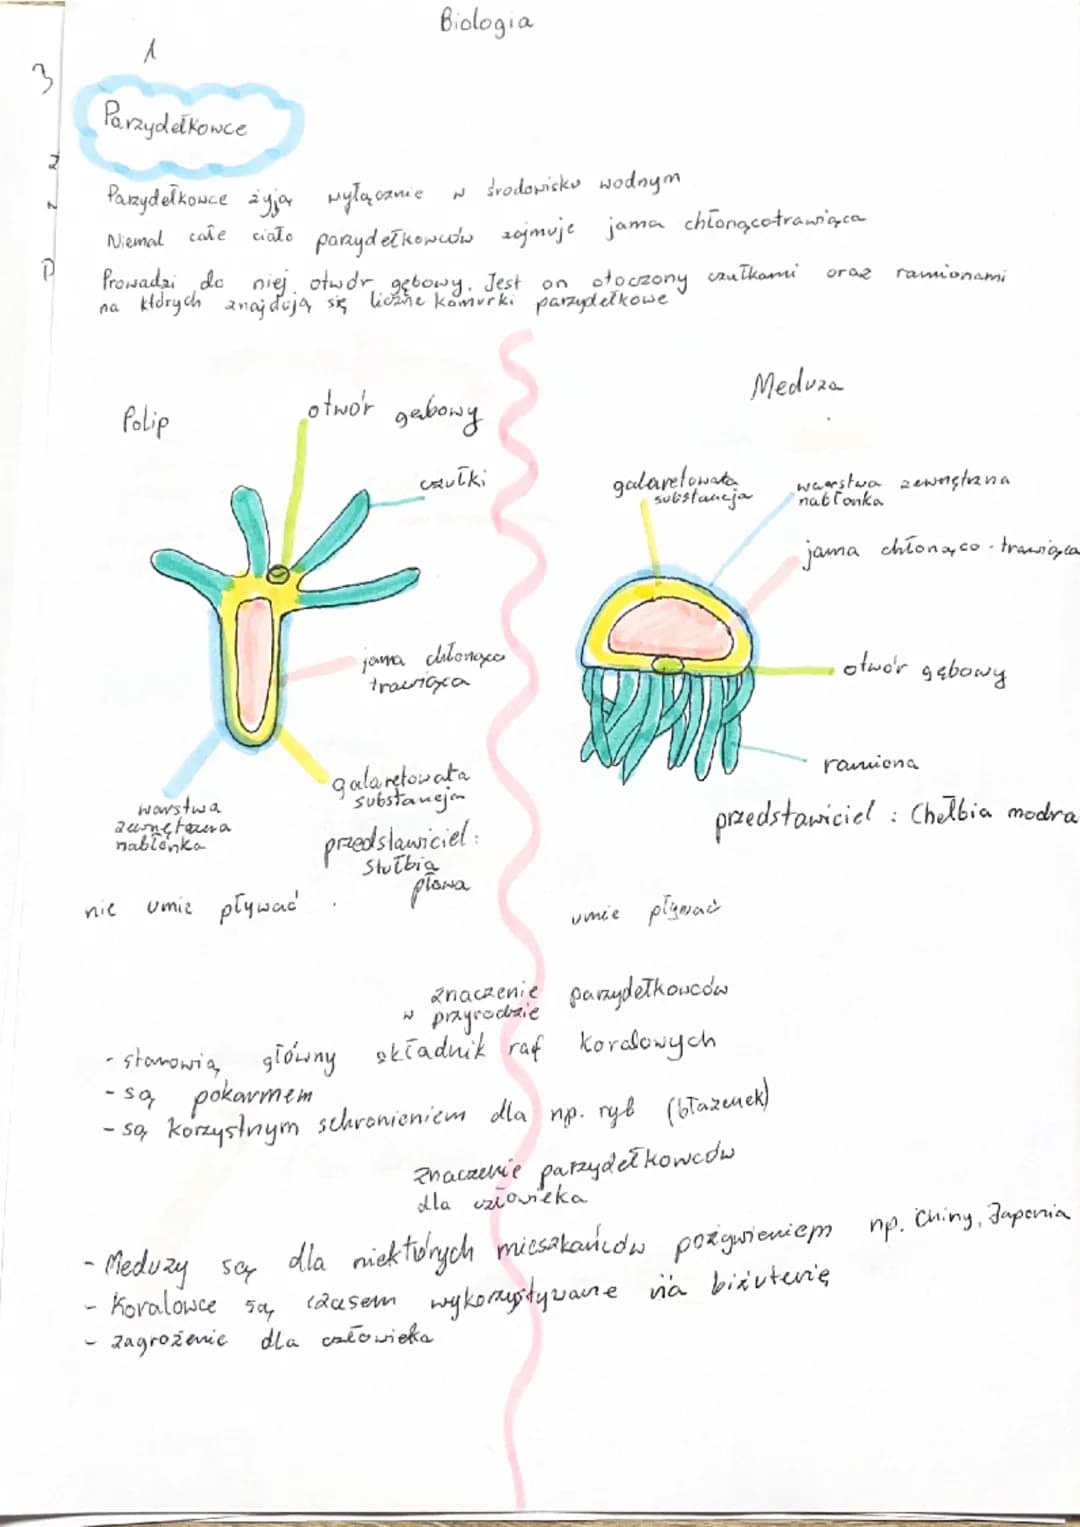 Biologia
1
3
Parzydełkowce
Parzydełkowce żyją wyłącznie w środowisku wodnym
Niemal całe ciało parzydełkowców zajmuje jama chłonącotrawiąca
Prowadzi do niej otwór gębowy. Jest on otoczony czułkami oraz ramionami
na których znajdują się liczne komurki parzydełkowe
Polip
otwór gębowy
czułki
jama chłonąco
trawiąca
galaretowata
substancja
warstwa
zewnętrzna
nabłonka
przedstawiciel:
Stułbia
płowa
nie umie pływać
Meduza
galaretowata
substancja
warstwa zewnętrzna
nabłonka
jama chłonąco-trawiąca
otwór gębowy
ramiona
przedstawiciel : Chełbia modra
umie pływać
znaczenie parzydełkowców
w przyrodzie
- stanowią główny składnik raf koralowych
- są pokarmem
- są korzystnym schronieniem dla np. ryb (błazenek)
Znaczenie parzydełkowców
dla człowieka
- Meduzy są dla niektórych mieszkańców pożywieniem np. Chiny, Japonia
- Koralowce są czasem wykorzystywane na biżuterię
- zagrożenie dla człowieka